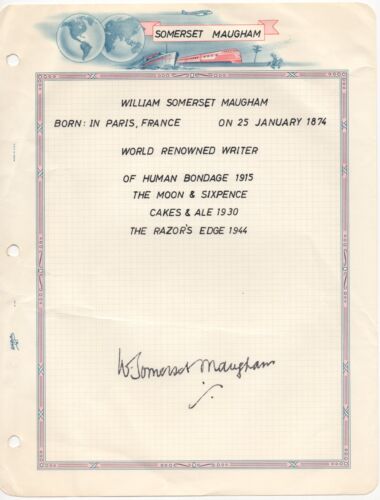 SOMERSET MAUGHAM
WILLIAM SOMERSET MAUGHAM
BORN: IN PARIS, FRANCE ON 25 JANUARY 1874
WORLD RENOWNED WRITER
OF HUMAN BONDAGE 1915
THE MOON & SIXPENCE
CAKES & ALE 1930
THE RAZOR'S EDGE 1944
W. Somerset Maugham